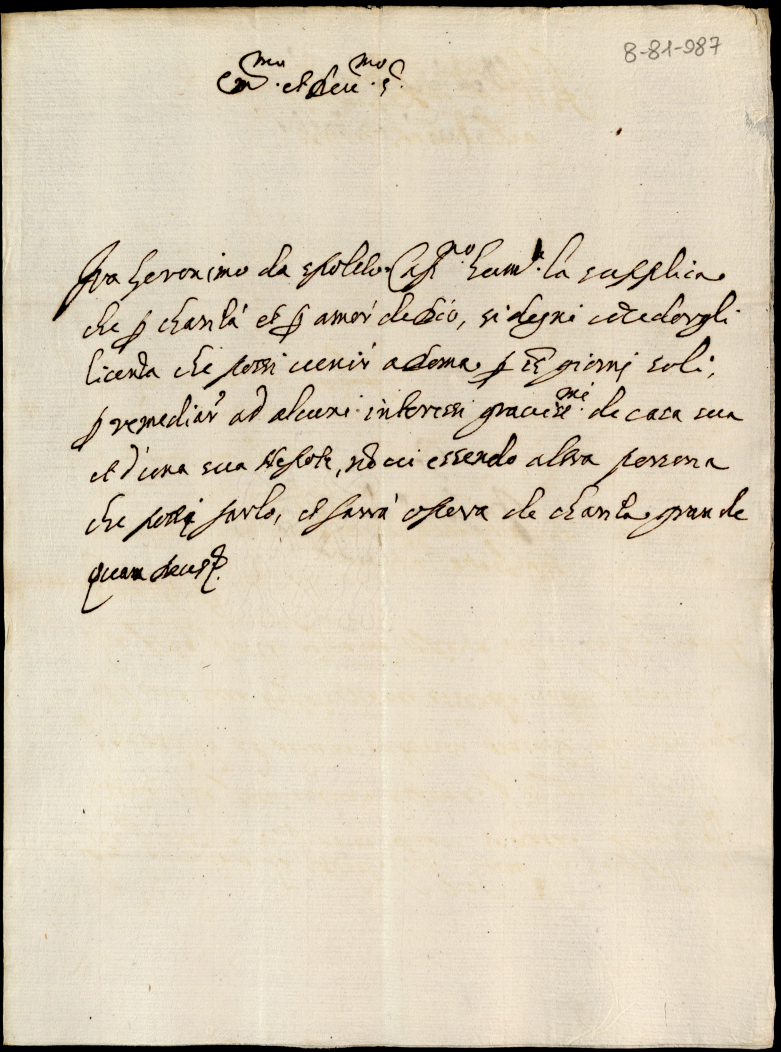 8-81-987
Em.mo et Reu.mo S.r
fra Geronimo da spoleto Cap.no hum.te la supplica
che p charità et p amor de Dio, si degni cōcedergli
licenta che possi uenir a Roma p giorni soli,
p remediar ad alcuni interessi grauiss.mi de casa sua
et d'una sua Nepote, nō ui essendo altra persona
che possi farlo, et sarrà opera de charita grande
quam Deus